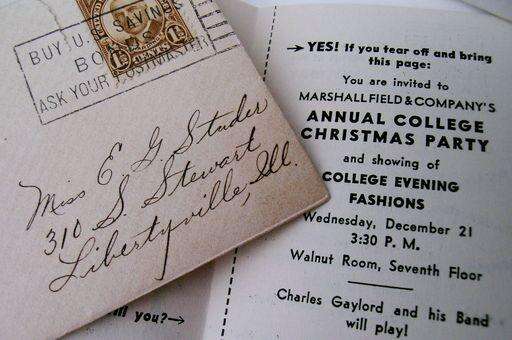 BUY U. S. SAVINGS
BONDS
ASK YOUR POSTMASTER
1½ CENTS 1½
Miss E. G. Studer
310 S. Stewart
Libertyville, Ill.
you?→
→YES! If you tear off and bring
this page:
You are invited to
MARSHALL FIELD & COMPANY'S
ANNUAL COLLEGE
CHRISTMAS PARTY
and showing of
COLLEGE EVENING
FASHIONS
Wednesday, December 21
3:30 P. M.
Walnut Room, Seventh Floor
Charles Gaylord and his Band
will play!